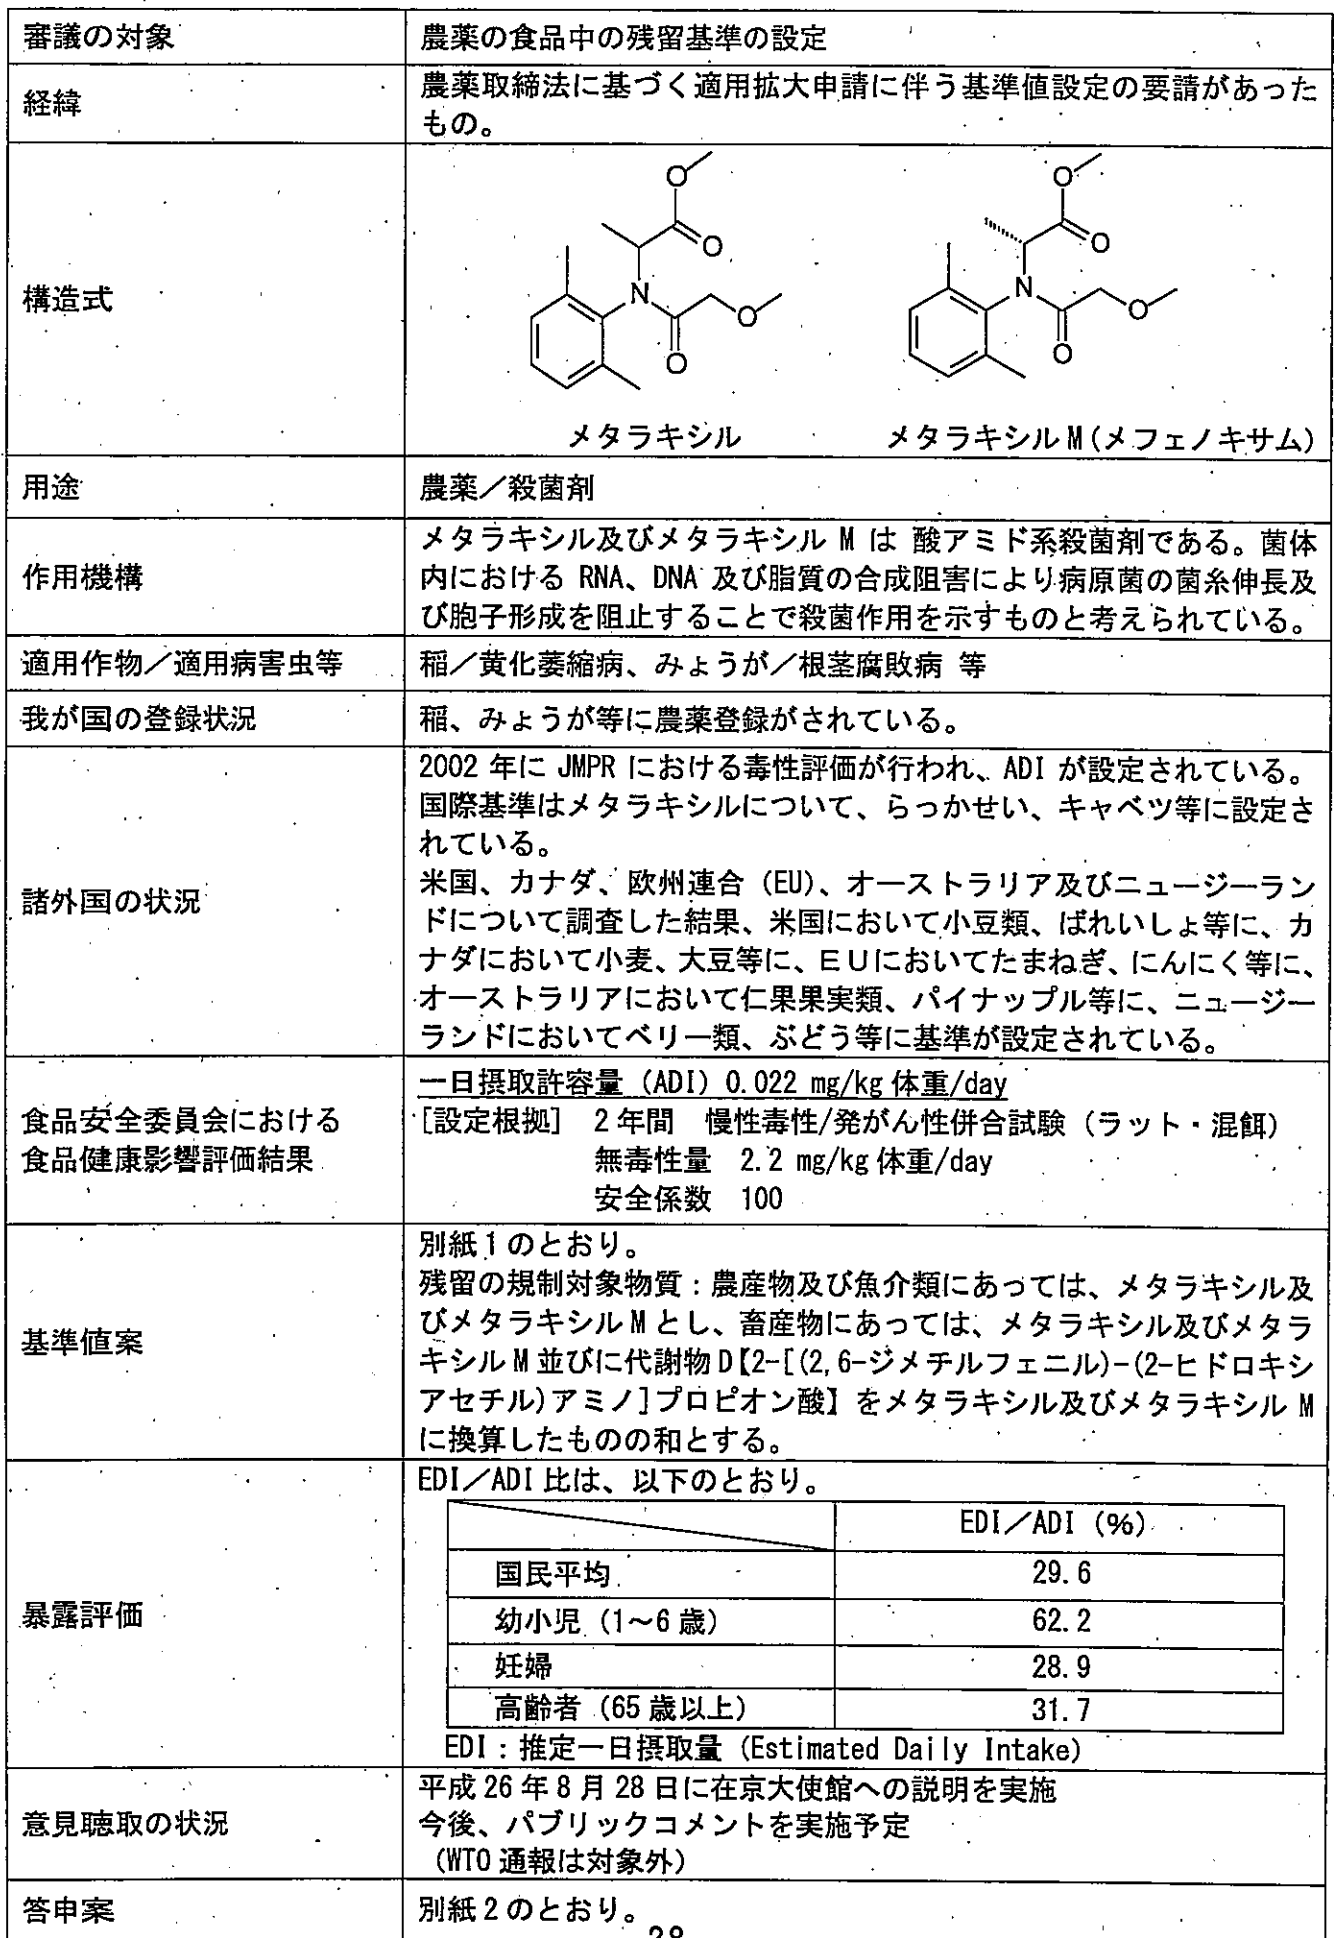 審議の対象
農薬の食品中の残留基準の設定
経緯
農薬取締法に基づく適用拡大申請に伴う基準値設定の要請があった
もの。
構造式
O
O
N
O
O
O
O
N
O
O
メタラキシル
メタラキシルM(メフェノキサム)
用途
農薬／殺菌剤
作用機構
メタラキシル及びメタラキシル M は 酸アミド系殺菌剤である。菌体
内における RNA、DNA 及び脂質の合成阻害により病原菌の菌糸伸長及
び胞子形成を阻止することで殺菌作用を示すものと考えられている。
適用作物／適用病害虫等
稲／黄化萎縮病、みょうが／根茎腐敗病 等
我が国の登録状況
稲、みょうが等に農薬登録がされている。
諸外国の状況
2002 年に JMPR における毒性評価が行われ、ADI が設定されている。
国際基準はメタラキシルについて、らっかせい、キャベツ等に設定さ
れている。
米国、カナダ、欧州連合（EU）、オーストラリア及びニュージーラン
ドについて調査した結果、米国において小豆類、ばれいしょ等に、カ
ナダにおいて小麦、大豆等に、ＥＵにおいてたまねぎ、にんにく等に、
オーストラリアにおいて仁果果実類、パイナップル等に、ニュージー
ランドにおいてベリー類、ぶどう等に基準が設定されている。
食品安全委員会における
食品健康影響評価結果
一日摂取許容量（ADI）0.022 mg/kg 体重/day
［設定根拠］ 2 年間 慢性毒性/発がん性併合試験（ラット・混餌）
無毒性量 2.2 mg/kg 体重/day
安全係数 100
基準値案
別紙 1 のとおり。
残留の規制対象物質：農産物及び魚介類にあっては、メタラキシル及
びメタラキシル M とし、畜産物にあっては、メタラキシル及びメタラ
キシル M 並びに代謝物 D【2-[(2,6-ジメチルフェニル)-(2-ヒドロキシ
アセチル)アミノ]プロピオン酸】をメタラキシル及びメタラキシル M
に換算したものの和とする。
暴露評価
EDI／ADI 比は、以下のとおり。
EDI／ADI（%）
国民平均 29.6
幼小児（1～6 歳） 62.2
妊婦 28.9
高齢者（65 歳以上） 31.7
EDI：推定一日摂取量（Estimated Daily Intake）
意見聴取の状況
平成 26 年 8 月 28 日に在京大使館への説明を実施
今後、パブリックコメントを実施予定
（WTO 通報は対象外）
答申案
別紙 2 のとおり。